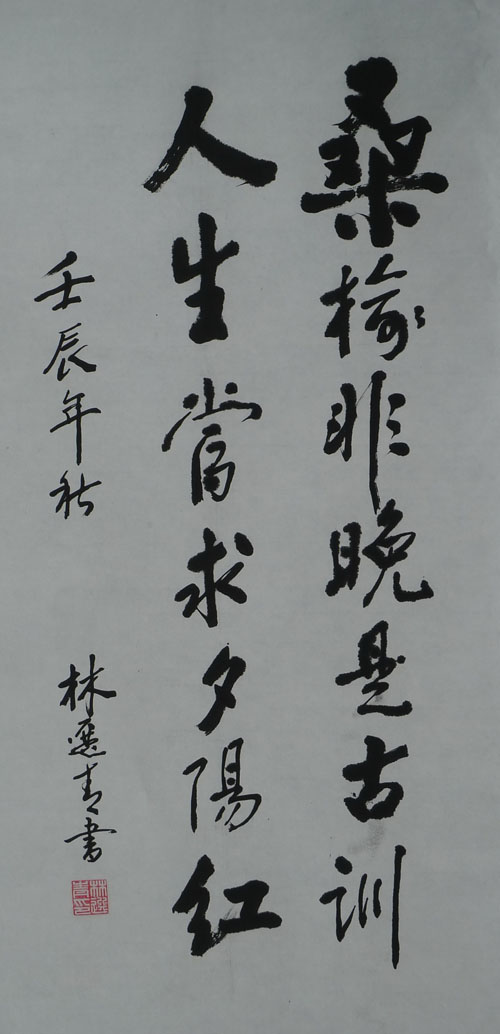 桑榆非晚是古訓
人生當求夕陽紅
壬辰年秋
林選青書